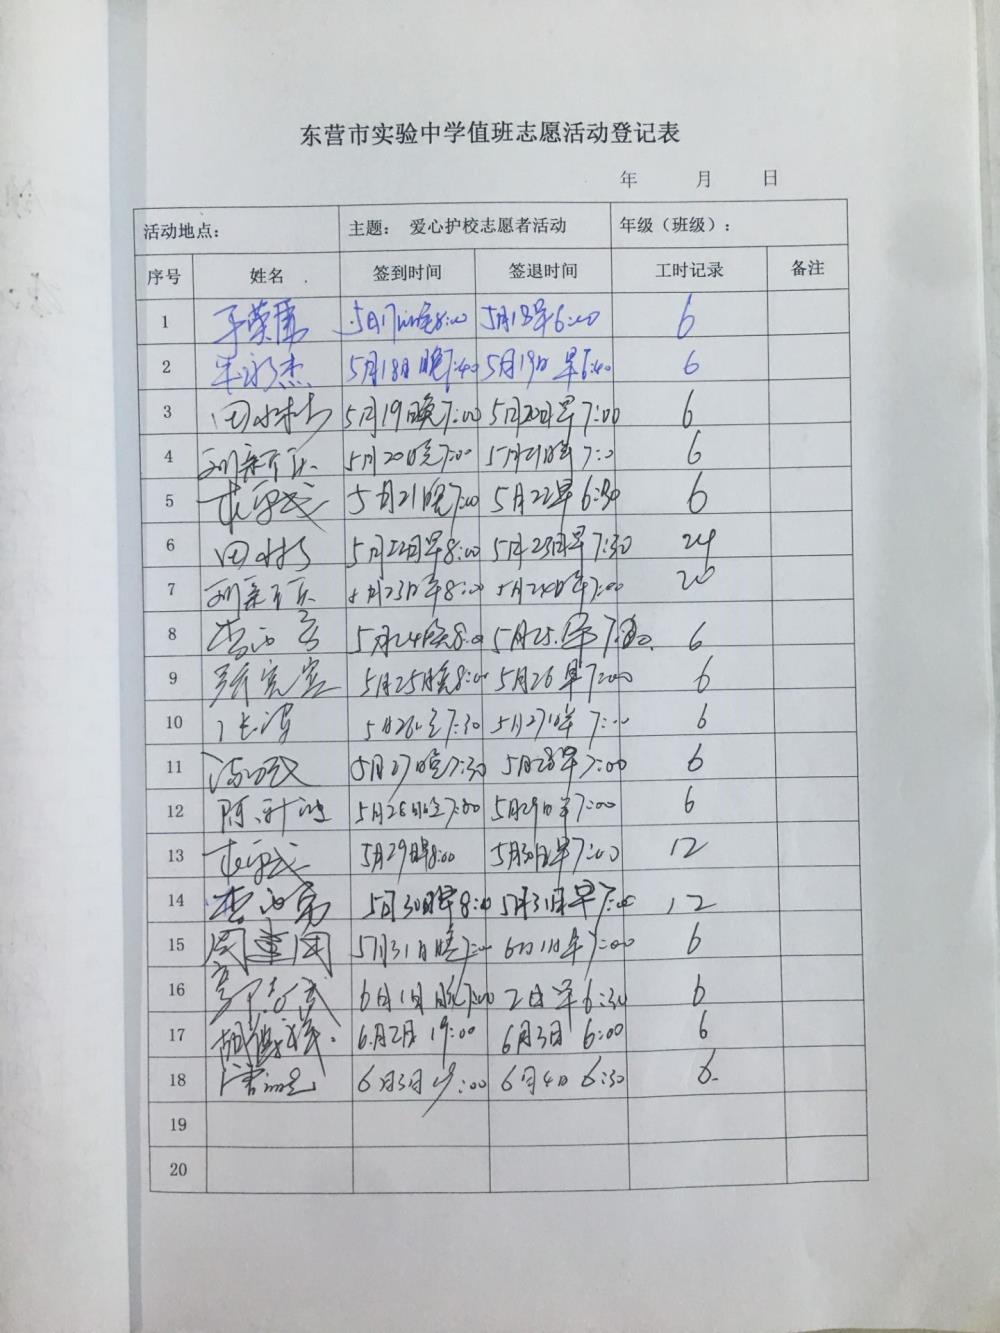 东营市实验中学值班志愿活动登记表
年 月 日
活动地点: 主题: 爱心护校志愿者活动 年级(班级):
序号 姓名 签到时间 签退时间 工时记录 备注
1 5月17日晚8:00 5月18早6:00 6
2 牟永杰 5月18日晚7:40 5月19日早6:40 6
3 田水林 5月19日晚7:00 5月20日早7:00 6
4 5月20晚7:00 5月21日 7:00 6
5 5月21晚7:00 5月22早6:30 6
6 田水林 5月22日早8:00 5月23日早7:30 24
7 5月23日早8:00 5月24日早7:00 20
8 5月24晚8:00 5月25.早7:00 6
9 5月25晚8:00 5月26早7:00 6
10 张涛 5月26 7:30 5月27日早7:00 6
11 5月27晚7:30 5月28早7:00 6
12 陈 5月28日晚7:00 5月29日早7:00 6
13 5月29日早8:00 5月30日早7:00 12
14 5月30日早8:00 5月31日早7:00 12
15 周 5月31日晚7:00 6月1日早7:00 6
16 6月1日晚7:00 2日早6:30 6
17 胡 6月2日 19:00 6月3日 6:00 6
18 6月3日 19:00 6月4日 6:30 6
19
20